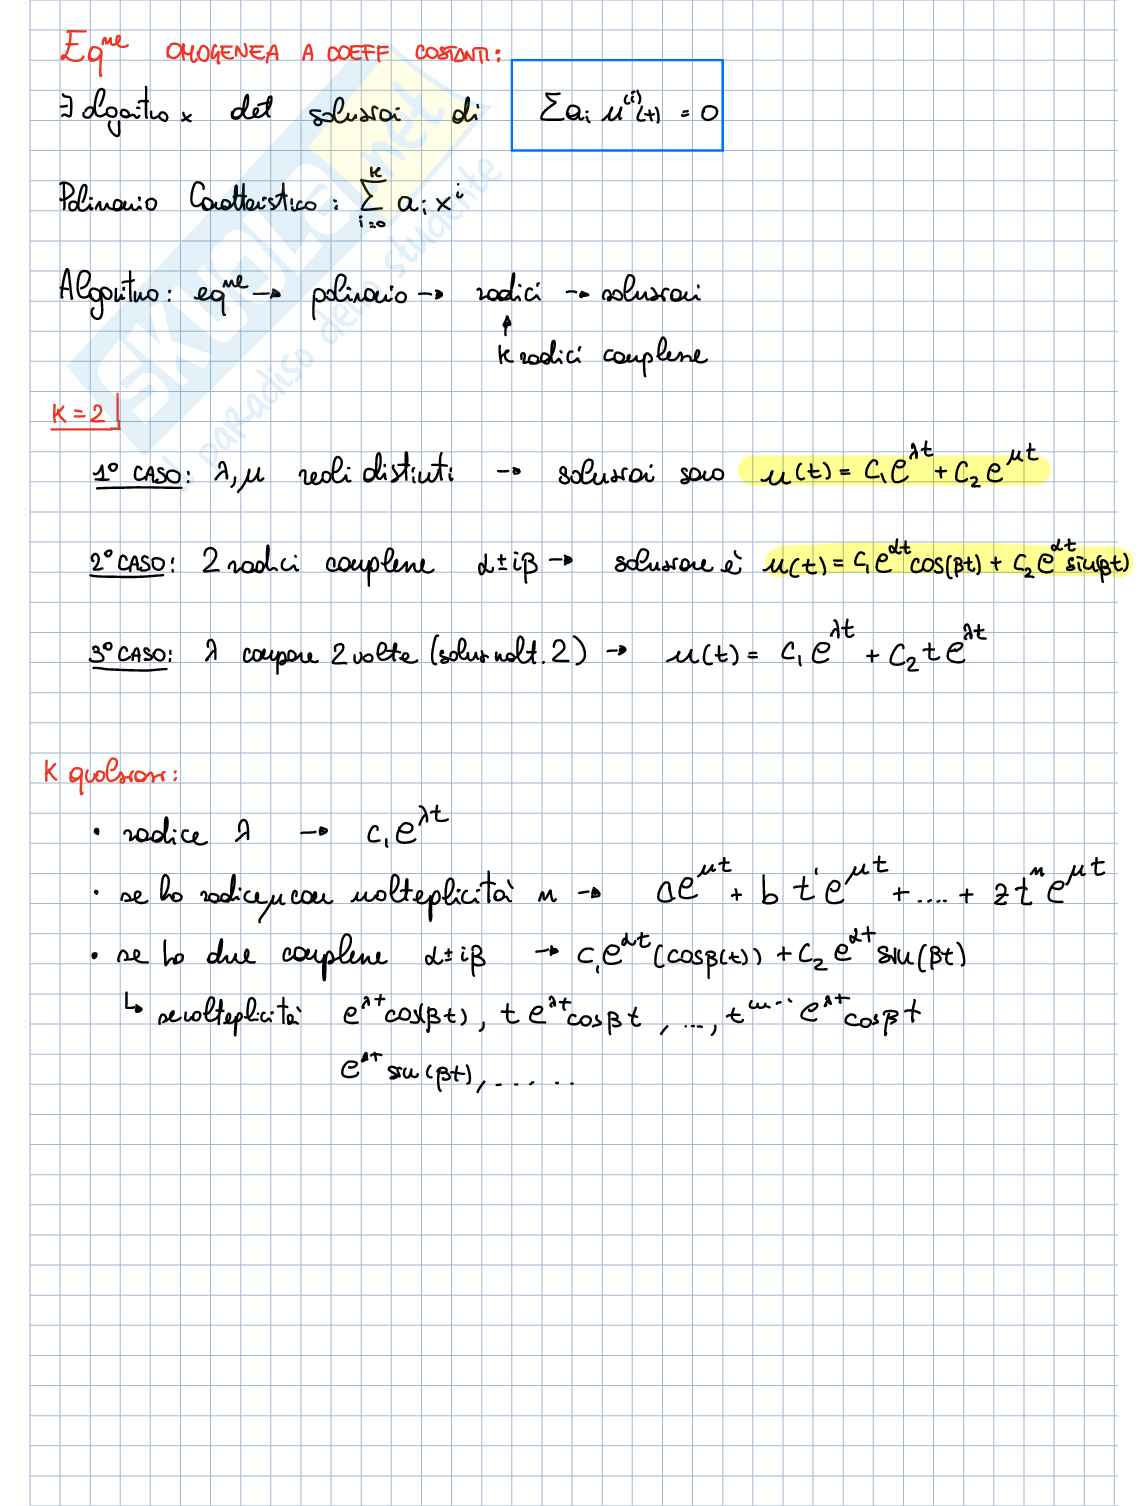 Eq^ne OMOGENEA A COEFF COSTANTI:
∃ algoritmo x det soluzioni di Σaᵢ u⁽ⁱ⁾(t) = 0
Polinomio Caratteristico: Σ_{i=0}^{K} aᵢ xⁱ
Algoritmo: eq^ne → polinomio → radici → soluzioni
↑
K radici complesse
K=2
1° CASO: λ, μ reali distinti → soluzioni sono u(t) = C₁e^{λt} + C₂e^{μt}
2° CASO: 2 radici complesse α±iβ → soluzione è u(t) = C₁e^{αt}cos(βt) + C₂e^{αt}sin(βt)
3° CASO: λ compare 2 volte (soluz molt. 2) → u(t) = C₁e^{λt} + C₂te^{λt}
K qualsiasi:
• radice λ → C₁e^{λt}
• se ho radice μ con molteplicità n → ae^{μt} + b t'e^{μt} + .... + zt^{n}e^{μt}
• se ho due complesse α±iβ → C₁e^{αt}(cosβ(t)) + C₂e^{αt}sin(βt)
↳ se molteplicità e^{λt}cos(βt), te^{λt}cosβt, ..., t^{m-1}e^{λt}cosβt
e^{λt}sin(βt), ......
SKUOLA.net
il paradiso dello studente